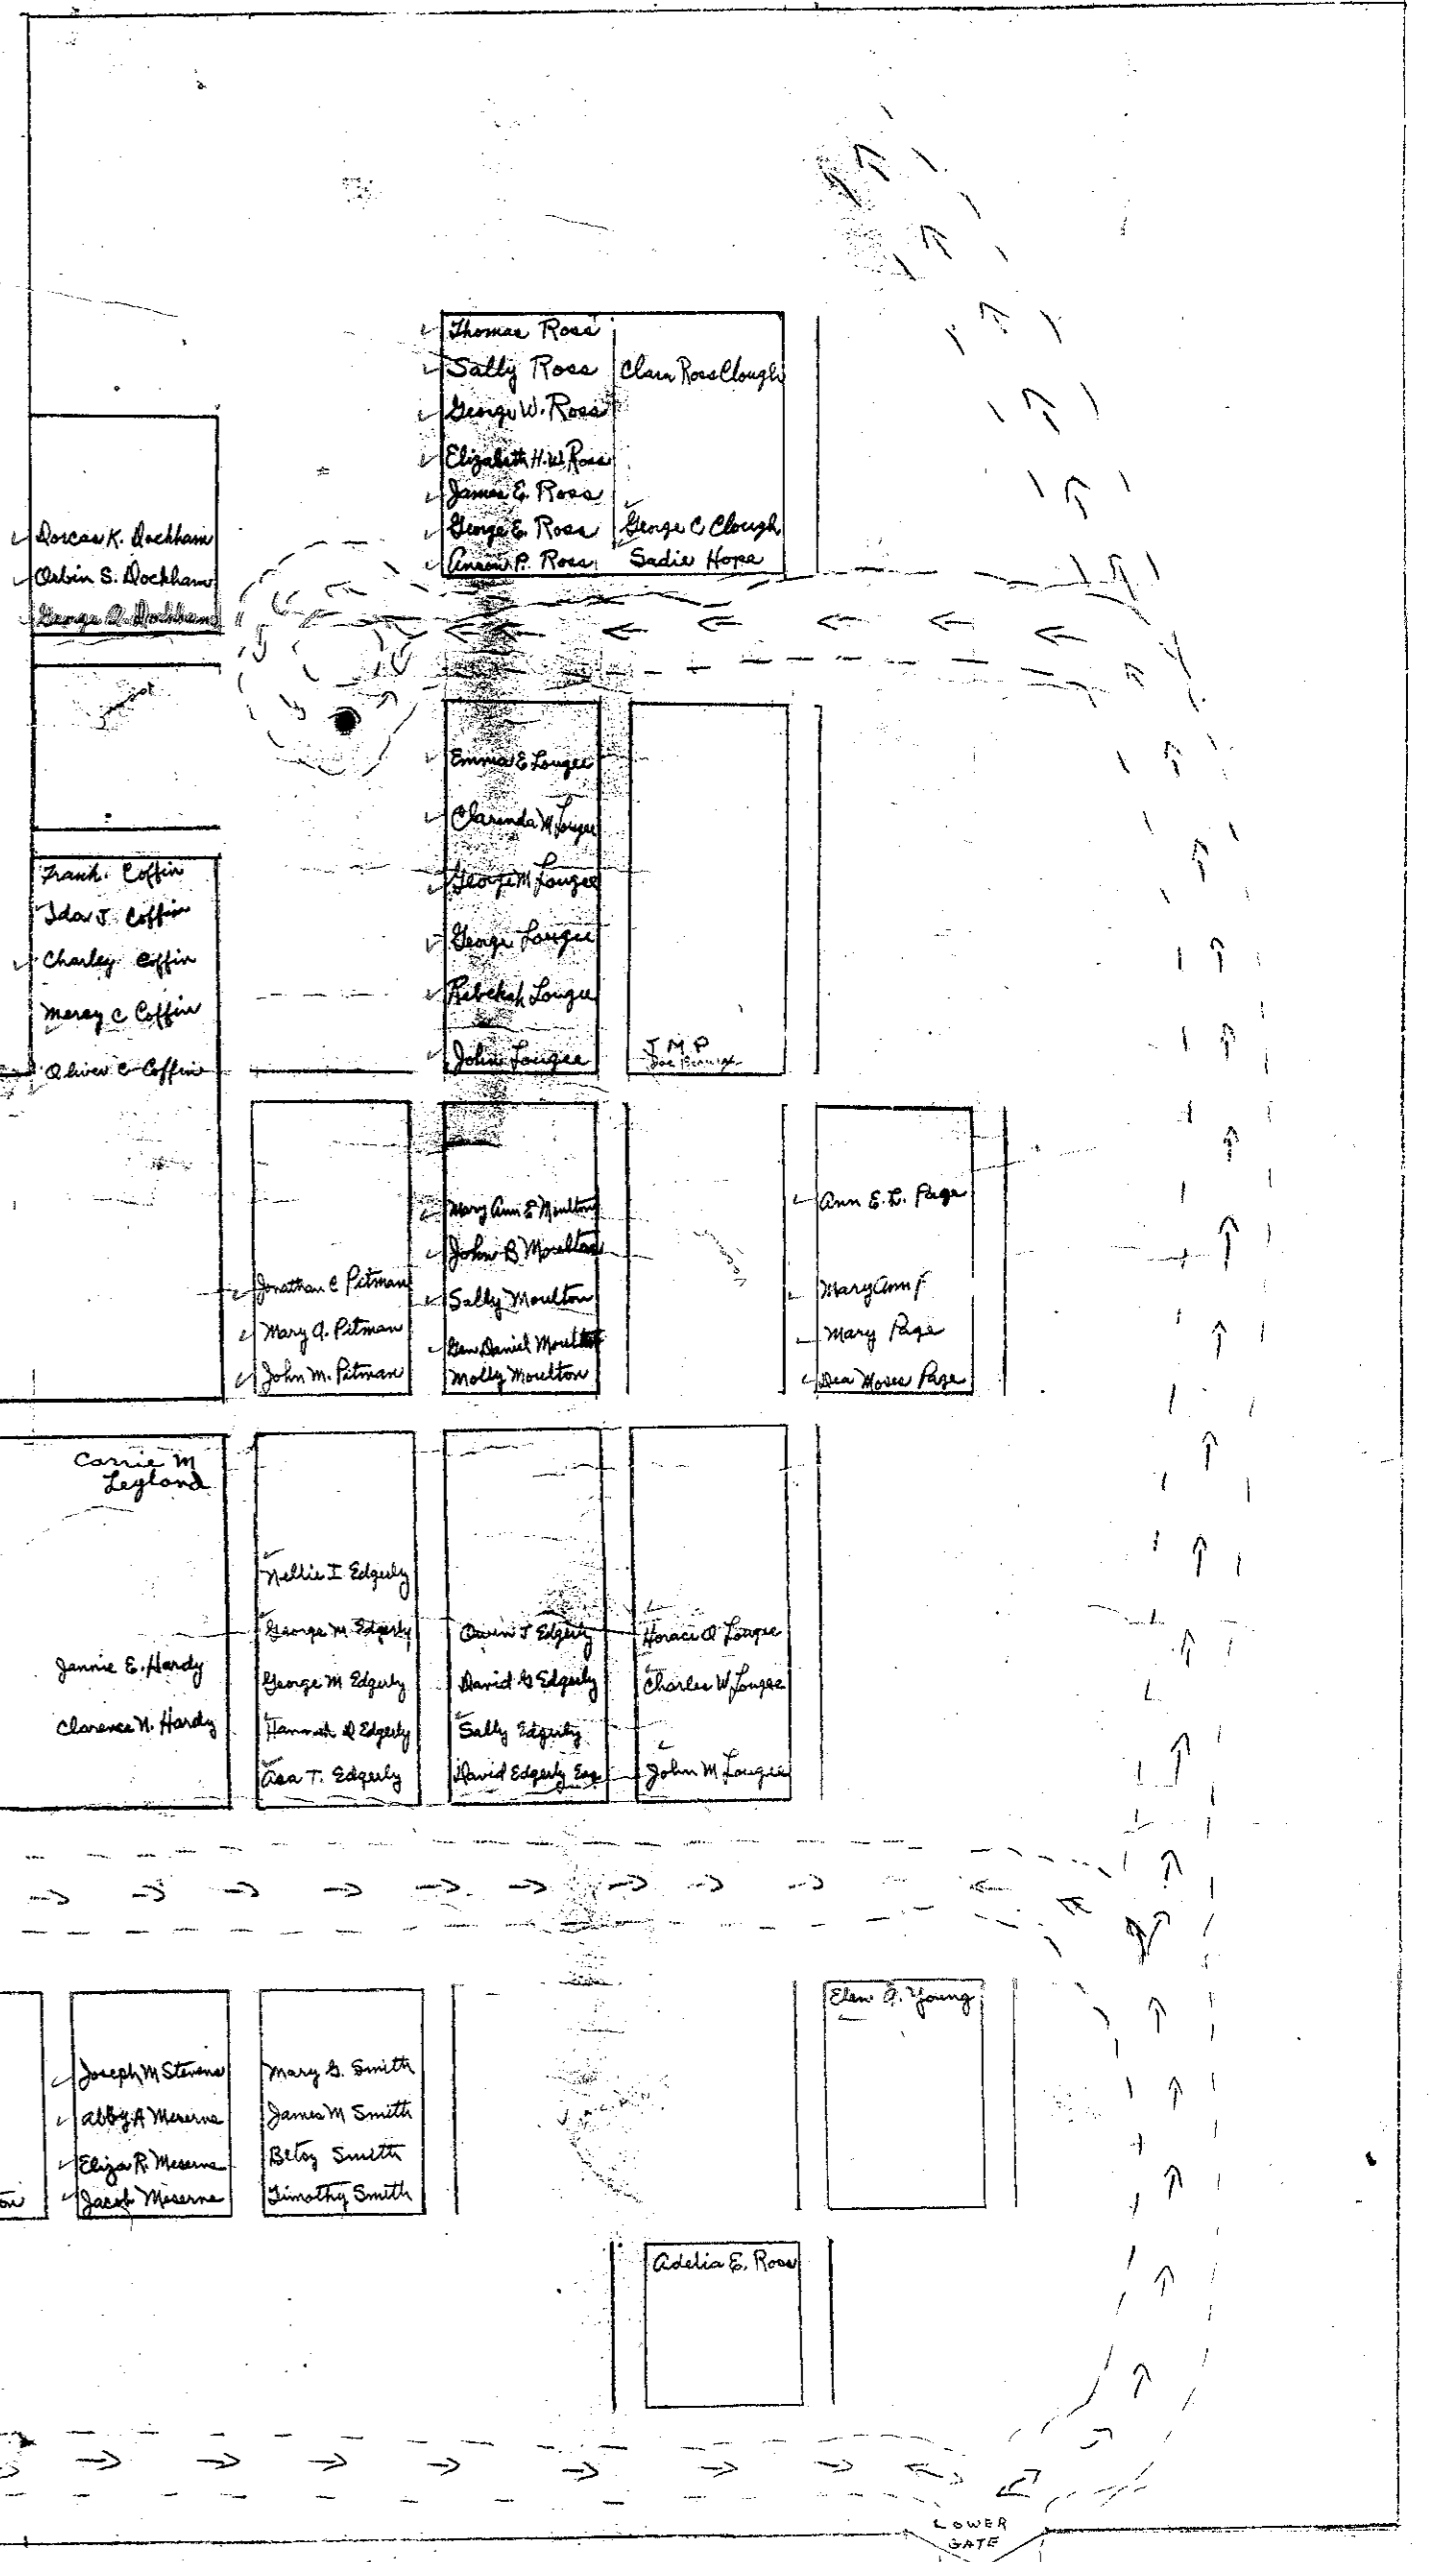 Thomas Ross
Sally Ross
Clara Ross Clough
George W. Ross
Elizabeth H. W. Ross
James E. Ross
George E. Ross
George C Clough
Anson P. Ross
Sadie Hope
Dorcas K. Dockham
Orbin S. Dockham
George Dockham
Emma E Lougee
Clarinda M Lougee
George M Lougee
George Lougee
Rebekah Lougee
John Lougee
J M P
Frank. Coffin
Ida J. Coffin
Charley Coffin
Mercy C Coffin
Oliver C Coffin
Jonathan C Pitman
Mary A. Pitman
John M. Pitman
Mary Ann E Moulton
John B Moulton
Sally Moulton
Gen Daniel Moulton
Molly Moulton
Ann E. L. Page
Mary Ann F
Mary Page
Dea Moses Page
Carrie M
Legland
Jannie E. Hardy
Clarence N. Hardy
Nellie I Edgerly
George M Edgerly
George M Edgerly
Hannah D Edgerly
Asa T. Edgerly
Owen J Edgerly
David G Edgerly
Sally Edgerly
David Edgerly Esq
Horace O Lougee
Charles W Lougee
John M Lougee
Joseph M Stevens
Abby A Meserve
Eliza R. Meserve
Jacob Meserve
Mary G. Smith
James M Smith
Betsy Smith
Timothy Smith
Elen A. Young
on
Adelia E. Ross
LOWER
GATE